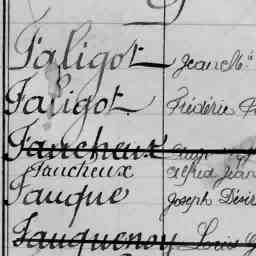 Faligot Jean M
Faligot Frédéric
Faucheux
Faucheux Alfred Jean
Fauque Joseph Désir
Fauquenoy Louis